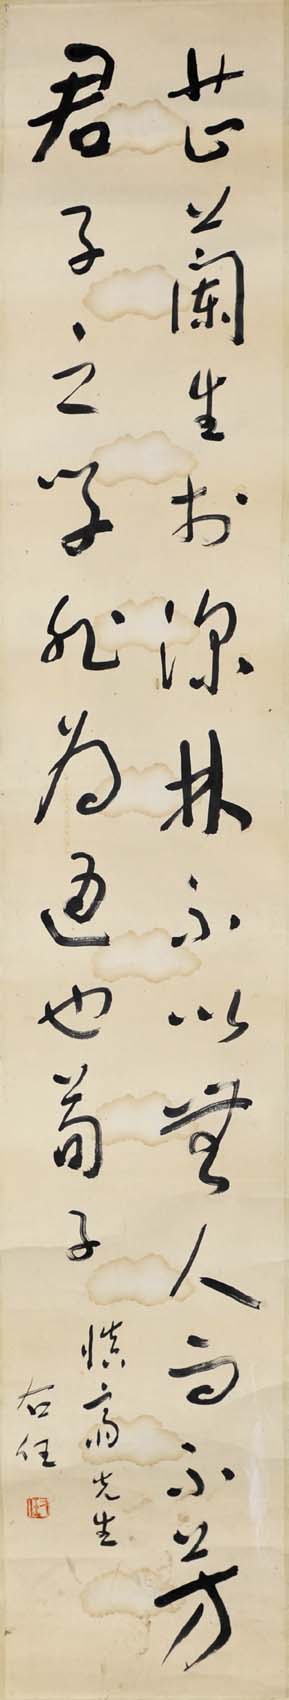 芷蘭生於深林不以無人而不芳
君子之學非為通也荀子
慎齋先生
右任